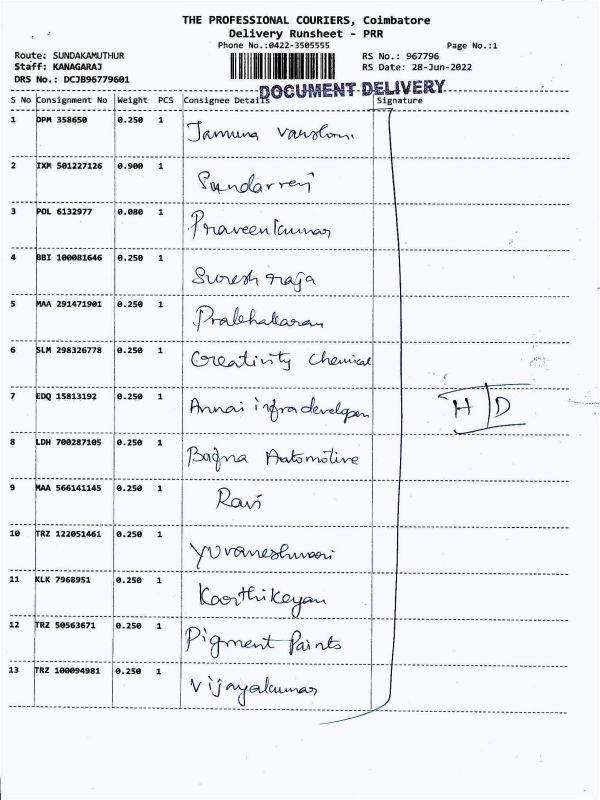 THE PROFESSIONAL COURIERS, Coimbatore
Delivery Runsheet - PRR
Phone No.:0422-3505555 Page No.:1
Route: SUNDAKAMUTHUR RS No.: 967796
Staff: KANAGARAJ RS Date: 28-Jun-2022
DRS No.: DCJB96779601
DOCUMENT DELIVERY
S No Consignment No Weight PCS Consignee Details Signature
1 DPM 358650 0.250 1 Jamuna
2 IXM 501227126 0.900 1 Sundarraj
3 POL 6132977 0.080 1 Praveenkumar
4 BBI 100081646 0.250 1 Suresh raja
5 MAA 291471901 0.250 1 Prabhakaran
6 SLM 298326778 0.250 1 Creativity chemical
7 EDQ 15813192 0.250 1 Annai infra developer
H/D
8 LDH 700287105 0.250 1 Automotive
9 MAA 566141145 0.250 1 Ravi
10 TRZ 122051461 0.250 1 Yuvaneshwari
11 KLK 7968951 0.250 1 Karthikeyan
12 TRZ 50563671 0.250 1 Pigment Paints
13 TRZ 100094981 0.250 1 Vijayakumar